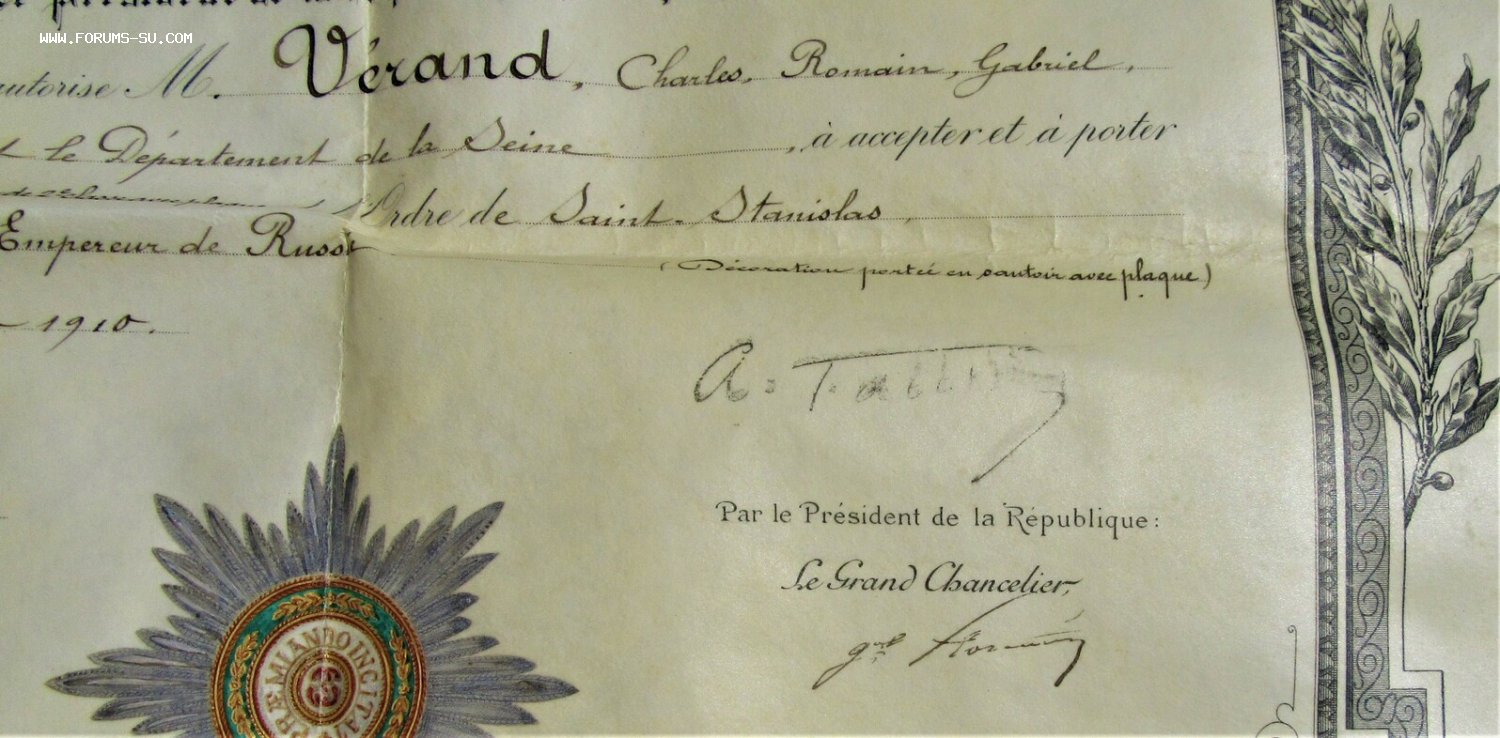 WWW.FORUMS-SU.COM
autorise M. Vérand, Charles, Romain, Gabriel,
le Département de la Seine, à accepter et à porter
Ordre de Saint-Stanislas,
Empereur de Russie
(Décoration portée en sautoir avec plaque)
1910.
A. Fallières
Par le Président de la République:
Le Grand Chancelier,
gal Florentin
PRÆMIANDO INCITAT
SS